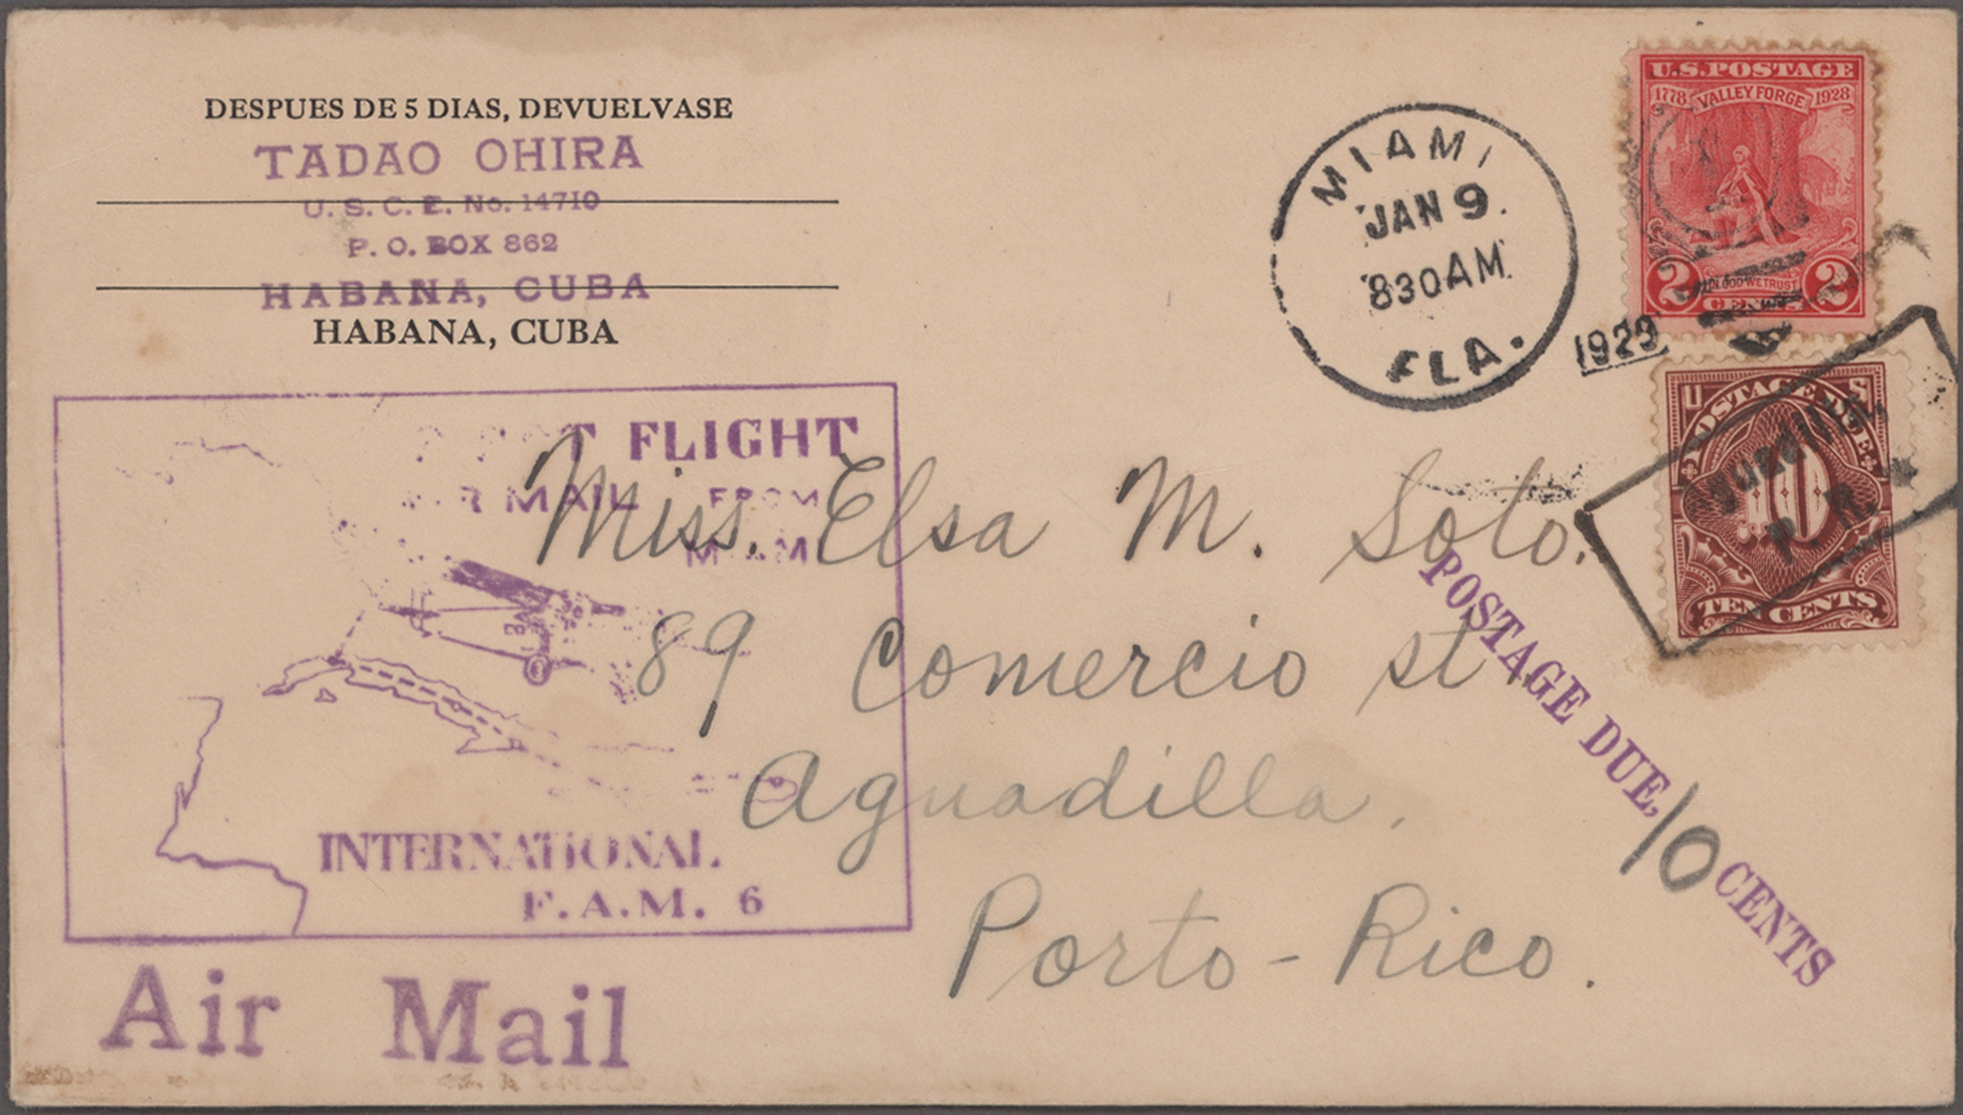 DESPUES DE 5 DIAS, DEVUELVASE
TADAO OHIRA
U. S. C. E. No. 14710
P. O. BOX 862
HABANA, CUBA
HABANA, CUBA
MIAMI
JAN 9
830 AM
FLA.
1929
U.S. POSTAGE
1778 VALLEY FORGE 1928
IN GOD WE TRUST
2 CENTS 2
U S
POSTAGE DUE
10
TEN CENTS
Aguadilla,
P. R.
T FLIGHT
R MAIL FROM
MIAMI
INTERNATIONAL
F.A.M. 6
Air Mail
Miss. Elsa M. Soto.
89 Comercio st.
Aguadilla.
Porto-Rico.
POSTAGE DUE, 10 CENTS